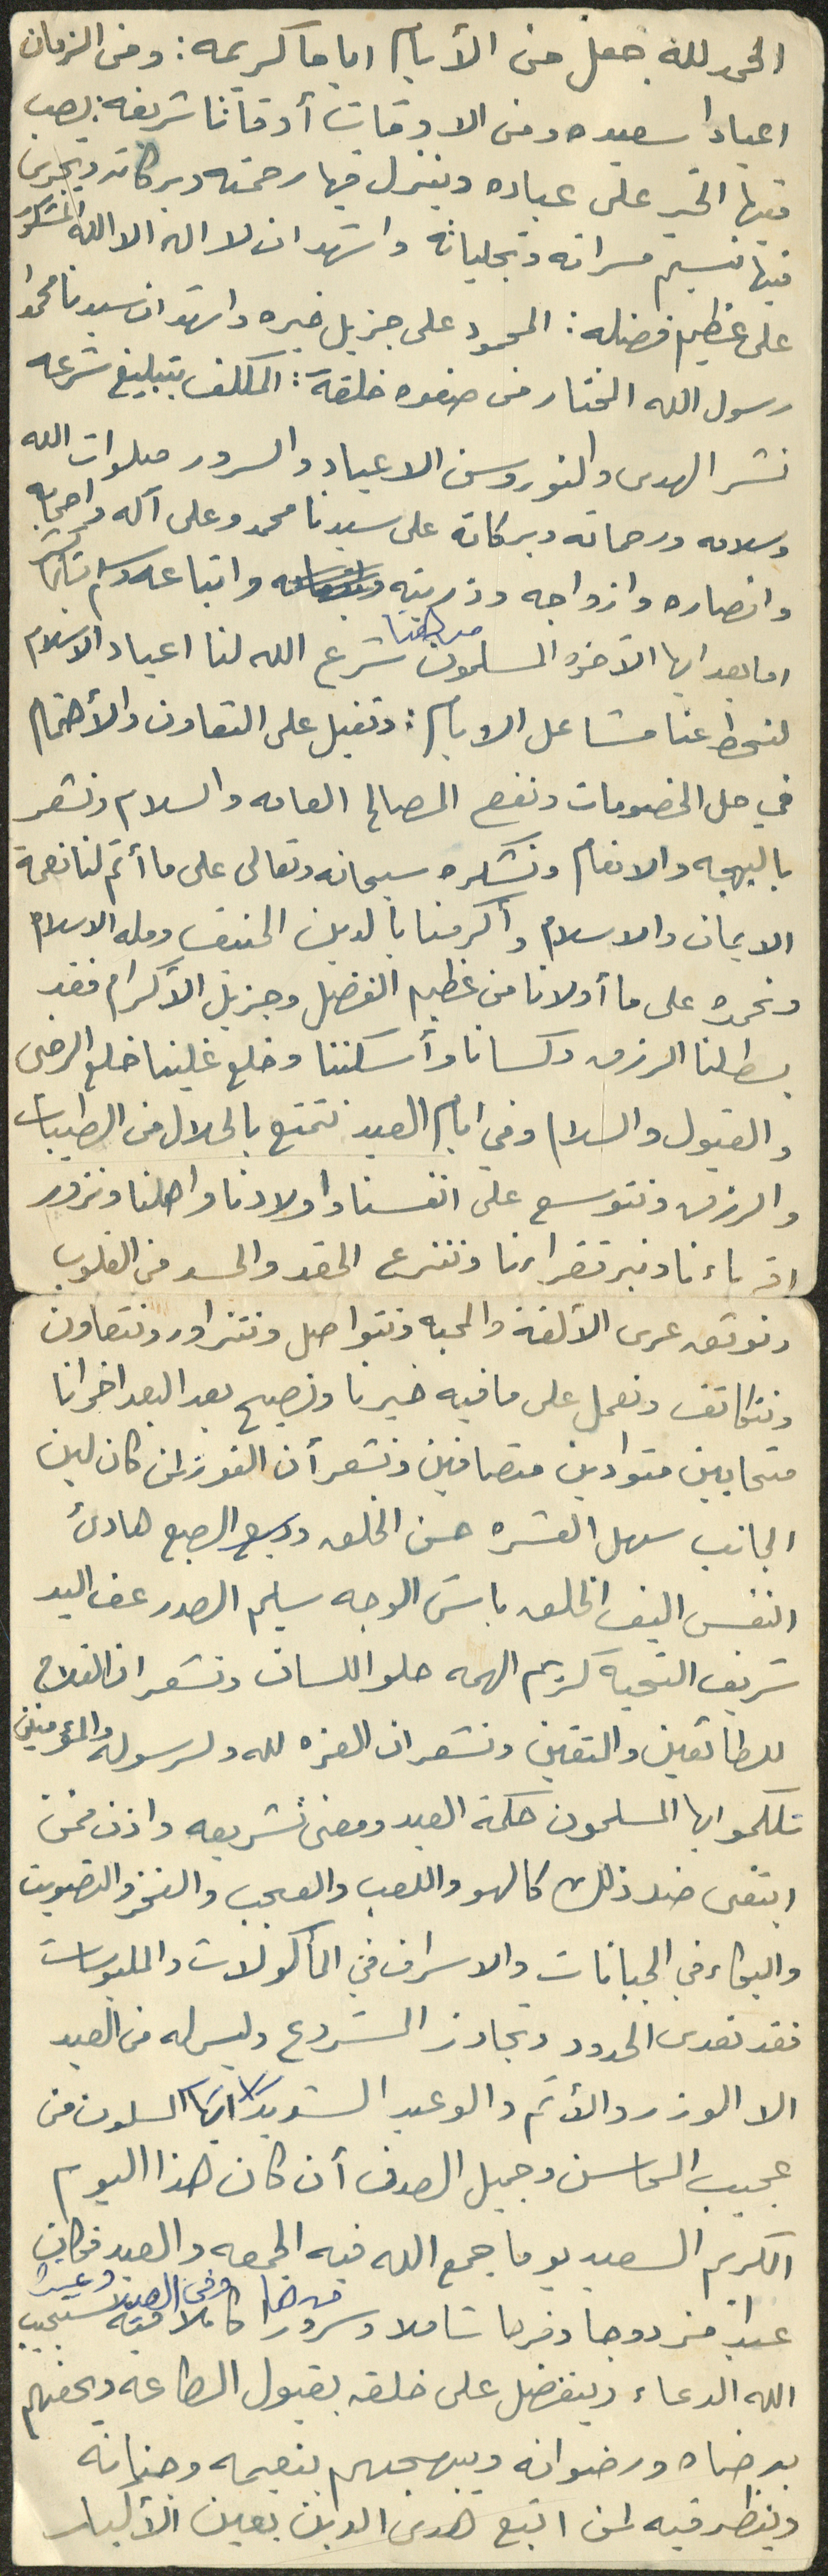 الحمد لله جعل من الأيام اياما كريمه : ومن الزمان
اعيادا سعيده ومن الاوقات أوقاتا شريفه : يصب
فيها الخير على عباده وينزل فيها رحمته وبركاته وتجري
فيها نسيم مسراته وتجلياته واشهد ان لا اله الا الله المشكور
على عظيم فضله : المحمود على جزيل خيره واشهد ان سيدنا محمدا
رسول الله المختار من صفوه خلقه : المكلف بتبليغ شرعه
نشر الهدى والنور وسن الاعياد والسرور صلوات الله
وسلامه ورحماته وبركاته على سيدنا محمد وعلى آله واصحابه
وانصاره وازواجه وذريته واتباعه وسلم
اما بعد ايها الآخوه المسلمون من هنا شرع الله لنا اعياد الاسلام
لنحط عنا مشاغل الايام : ونقبل على التعاون والأهتمام
في حل الخصومات ونفع المصالح العامه والسلام ونشعر
بالبهجه والانعام ونشكره سبحانه وتعالى على ما أتم لنا نعمة
الايمان والاسلام وأكرمنا بالدين الحنيف ومله الاسلام
ونحمده على ما أولانا من عظيم الفضل وجزيل الأكرام فقد
بسط لنا الرزق وكسانا وأسكننا وخلع علينا خلع الرضى
والقبول والسلام وفي ايام العيد نتمتع بالحلال من الطيبات
والرزق ونتوسع على انفسنا واولادنا واهلنا ونزور
اقرباءنا ونبر فقراءنا وننزع الحقد والحسد من القلوب
ونوثق عرى الألفة والمحبه ونتواصل ونتزاور ونتعاون
ونتكاتف ونعمل على ما فيه خيرنا ونصبح بعد البعد اخوانا
متحابين متوادين متصافين ونشعر أن الفوز لمن كان لين
الجانب سهل العشره حسن الخلق وديع الطبع هادئ
النفس اليف الخلق باش الوجه سليم الصدر عف اليد
شريف التحيه كريم الهمه حلو اللسان ونشعر ان الفلاح
للطائعين والمتقين ونشعر ان العزه لله ولرسوله والمؤمنين
تلكموا ايها المسلمون حكمة العيد ومعنى تشريعه واذن فمن
ابتغى ضد ذلك كالهو واللعب والعجب والفخر والتصويت
والبكاء في الجبانات والاسراف في المأكولات والملبوسات
فقد تعدى الحدود وتجاوز المشروع وليس له من العيد
الا الوزر والأثم والوعيد الشديد ايها المسلمون من
عجيب المحاسن وجميل الصدف أن كان هذا اليوم
الكريم السعيد يوما جمع الله فيه الجمعه والعيد فكان
عيدا مزدوجا وفرحا شاملا وسرورا كاملا فيه يستجيب
الله الدعاء ويتفضل على خلقه بقبول الطاعه ويحفهم
برضاه ورضوانه ويبهجهم بنعيمه وحنانه
وينظر فيه لمن اتبع هدى الدين بعين الأكبار